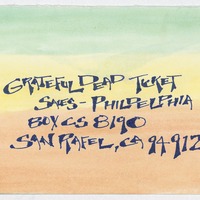 GRATEFUL DEAD TICKET
SALES - PHILDELPHIA
BOX CS 8190
SAN RAFEL, CA 94912